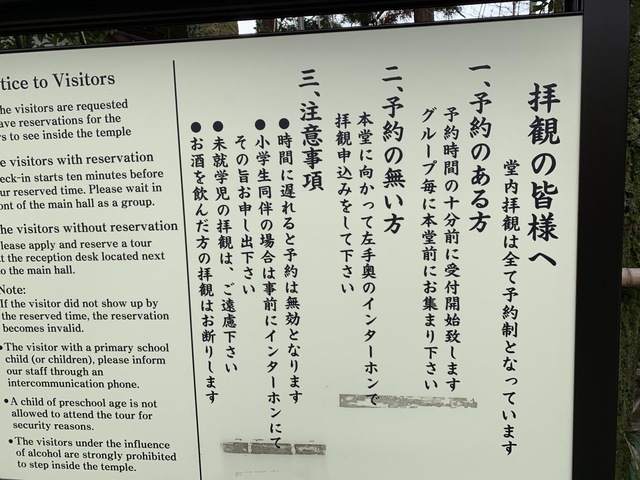 拝観の皆様へ
堂内拝観は全て予約制となっています
一、予約のある方
予約時間の十分前に受付開始致します
グループ毎に本堂前にお集まり下さい
二、予約の無い方
本堂に向かって左手奥のインターホンで
拝観申込みをして下さい
三、注意事項
●時間に遅れると予約は無効となります
●小学生同伴の場合は事前にインターホンにて
その旨お申し出下さい
●未就学児の拝観は、ご遠慮下さい
●お酒を飲んだ方の拝観はお断りします
tice to Visitors
he visitors are requested
ave reservations for the
rs to see inside the temple
e visitors with reservation
eck-in starts ten minutes before
ur reserved time. Please wait in
ont of the main hall as a group.
he visitors without reservation
lease apply and reserve a tour
t the reception desk located next
o the main hall.
Note:
If the visitor did not show up by
the reserved time, the reservation
becomes invalid.
•The visitor with a primary school
child (or children), please inform
our staff through an
intercommunication phone.
•A child of preschool age is not
allowed to attend the tour for
security reasons.
•The visitors under the influence
of alcohol are strongly prohibited
to step inside the temple.